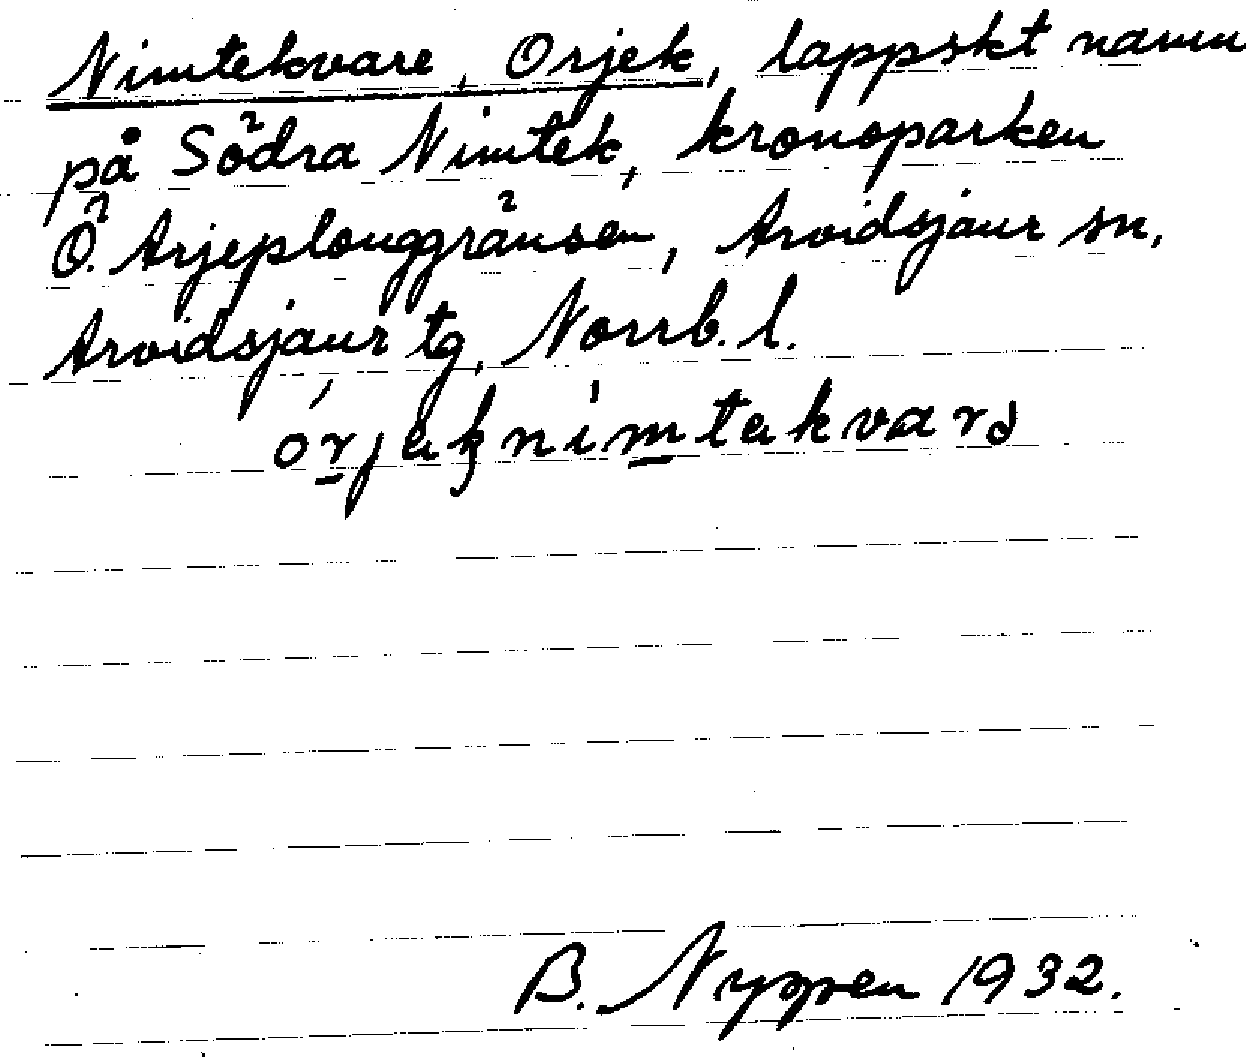 Nimtekvare, Orjek, lappskt namn
på Södra Nimtek, kronoparken
Ö. Arjeplouggränsen, Arvidsjaur sn,
Arvidsjaur tg, Norrb. l.
B. Nyppen 1932.